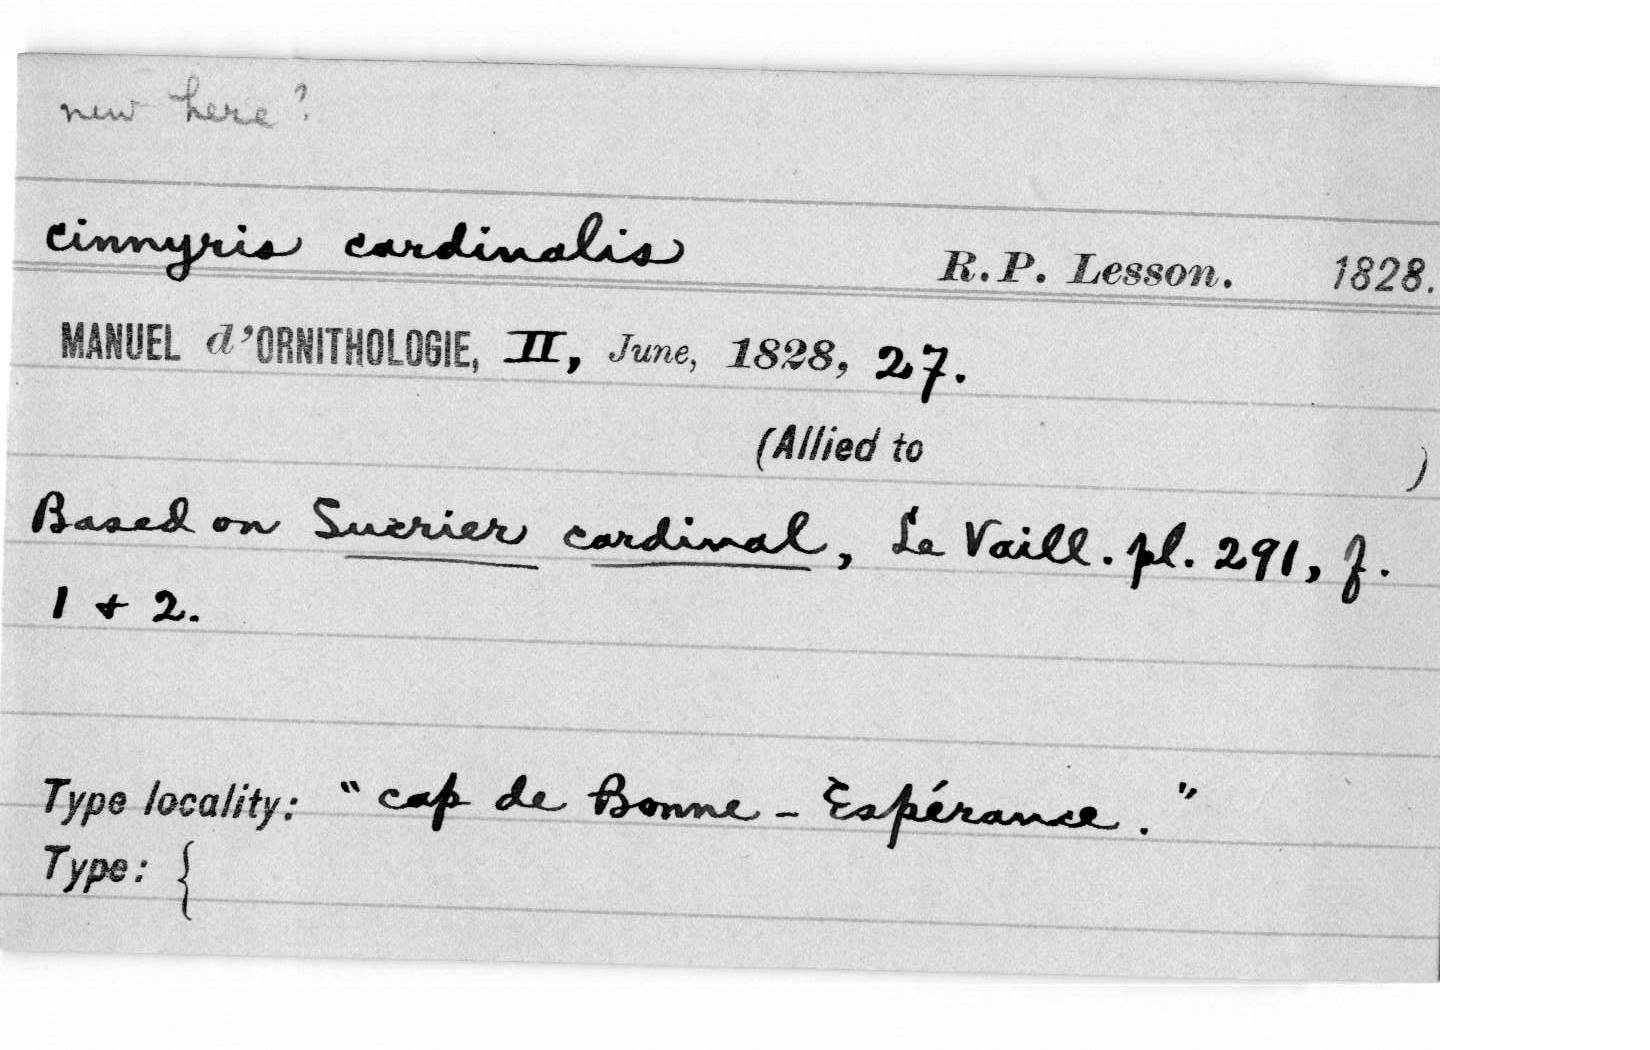 new here?
Cinnyris cardinalis R.P. Lesson. 1828.
MANUEL d'ORNITHOLOGIE, II, June, 1828, 27.
(Allied to )
Based on Sucrier cardinal, Le Vaill. pl. 291, f.
1 + 2.
Type locality: "cap de Bonne-Espérance."
Type: {